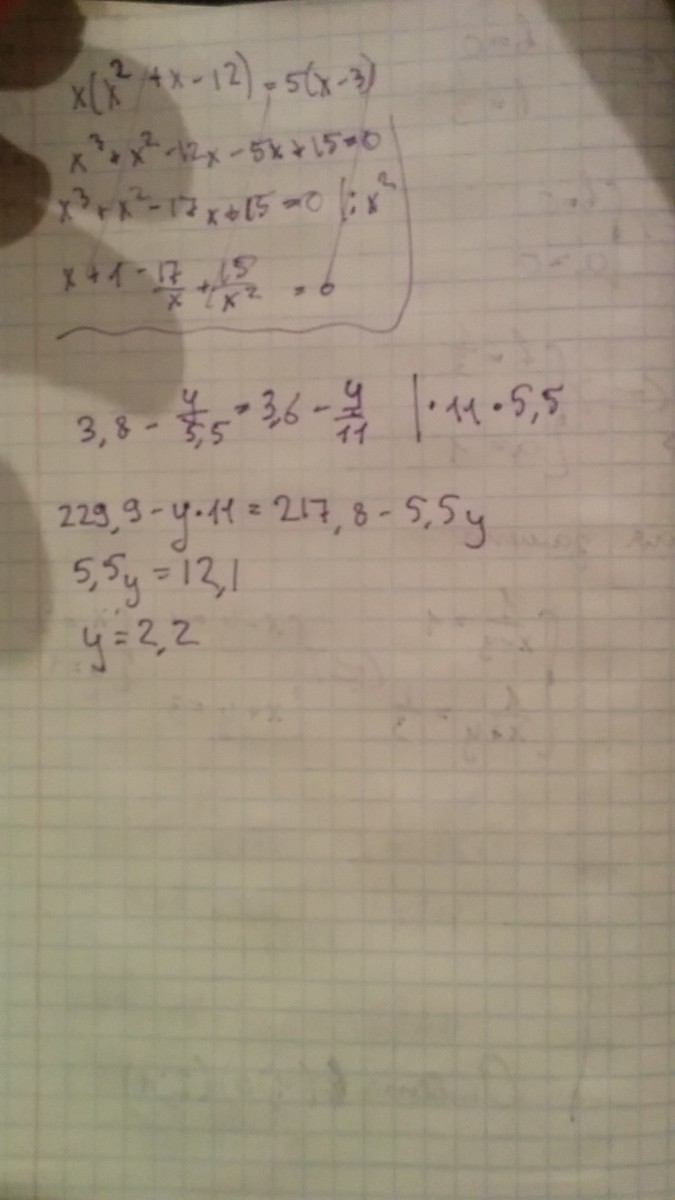 x(x² + x - 12) = 5(x - 3)
x³ + x² - 12x - 5x + 15 = 0
x³ + x² - 17x + 15 = 0 | : x²
x + 1 - 17/x + 15/x² = 0
3,8 - y/5,5 = 3,6 - y/11 | · 11 · 5,5
229,9 - y · 11 = 217,8 - 5,5y
5,5y = 12,1
y = 2,2